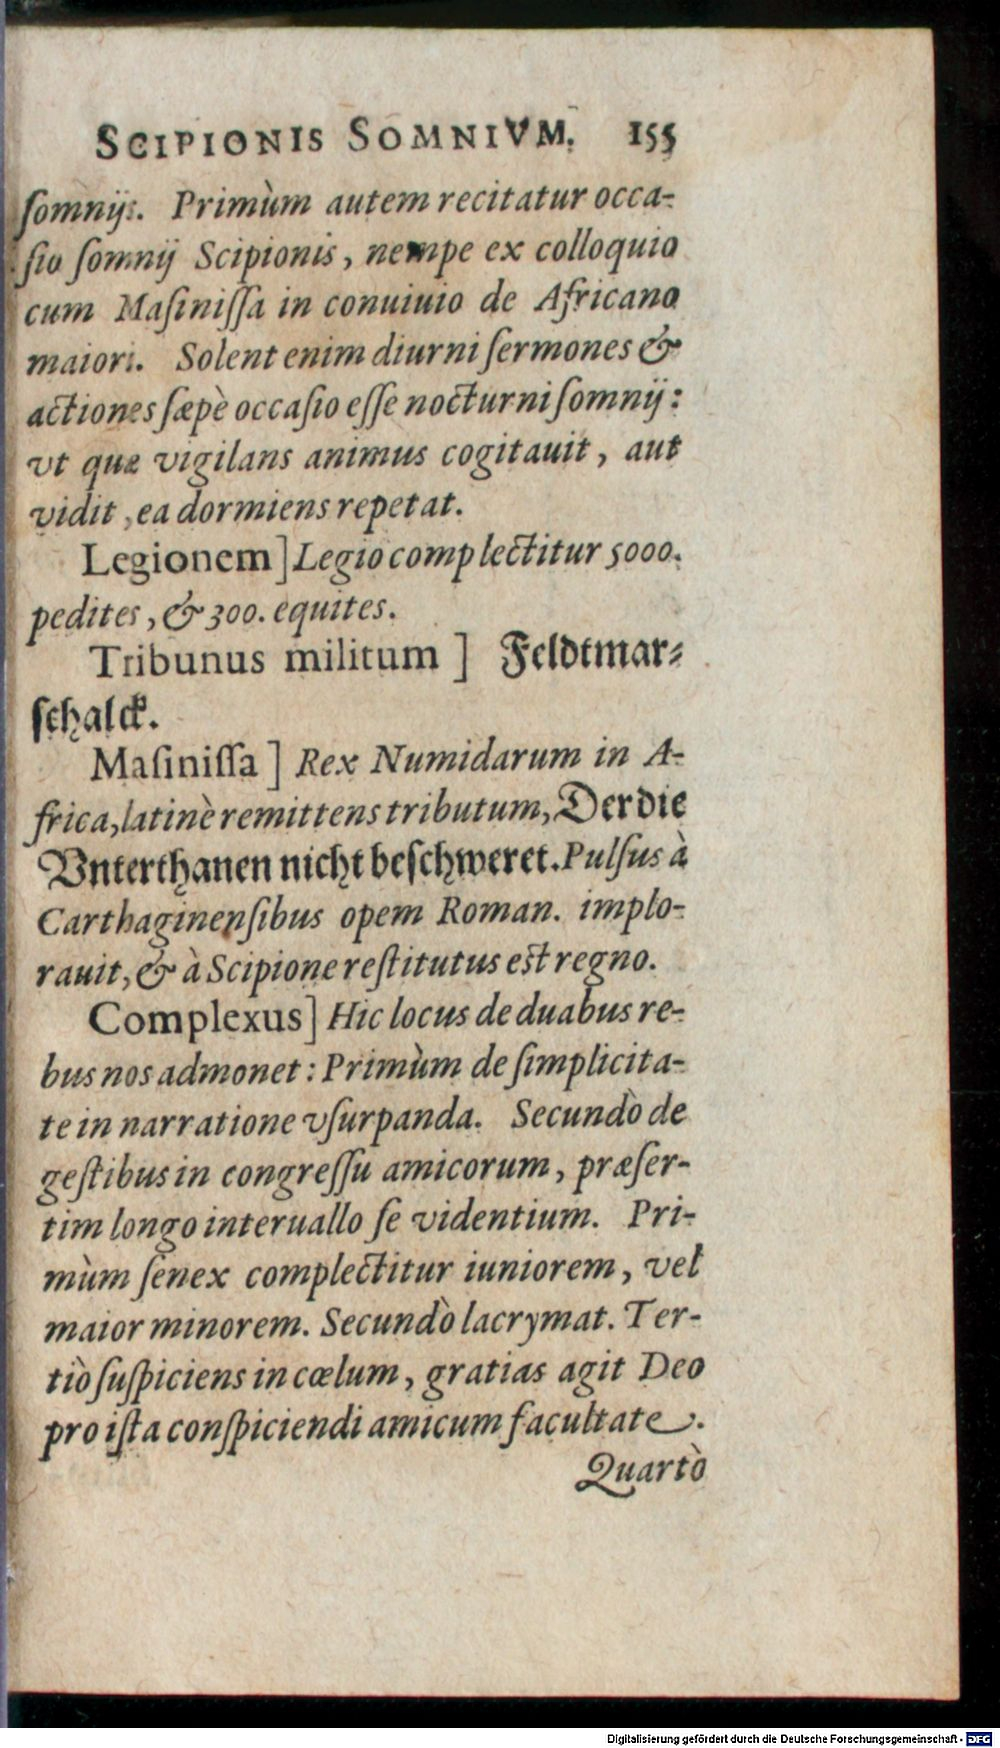 SCIPIONIS SOMNIVM. 155
ſomnijs. Primùm autem recitatur occa-
ſio ſomnij Scipionis, nempe ex colloquio
cum Maſiniſſa in conuiuio de Africano
maiori. Solent enim diurni ſermones &
actiones ſæpè occaſio eſſe nocturni ſomnij:
vt quæ vigilans animus cogitauit, aut
vidit, ea dormiens repetat.
Legionem] Legio complectitur 5000.
pedites, & 300. equites.
Tribunus militum] Feldtmar⸗
ſchalck.
Maſiniſſa] Rex Numidarum in A-
frica, latinè remittens tributum, Der die
Vnterthanen nicht beſchweret. Pulſus à
Carthaginenſibus opem Roman. implo-
rauit, & à Scipione reſtitutus est regno.
Complexus] Hic locus de duabus re-
bus nos admonet: Primùm de ſimplicita-
te in narratione vſurpanda. Secundò de
geſtibus in congreſſu amicorum, præſer-
tim longo interuallo ſe videntium. Pri-
mùm ſenex complectitur iuniorem, vel
maior minorem. Secundò lacrymat. Ter-
tiò ſuſpiciens in cœlum, gratias agit Deo
pro iſta conſpiciendi amicum facultate.
Quartò
Digitalisierung gefördert durch die Deutsche Forschungsgemeinschaft - DFG